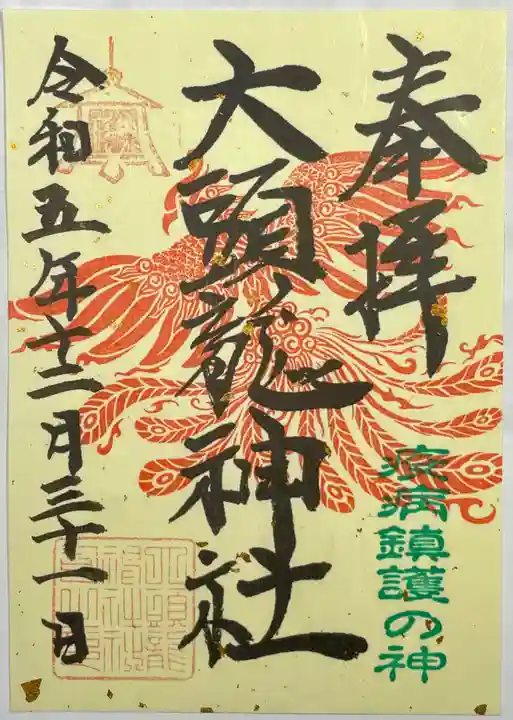 奉拝
疫病鎮護の神
大頭龍神社
令和五年十二月三十一日